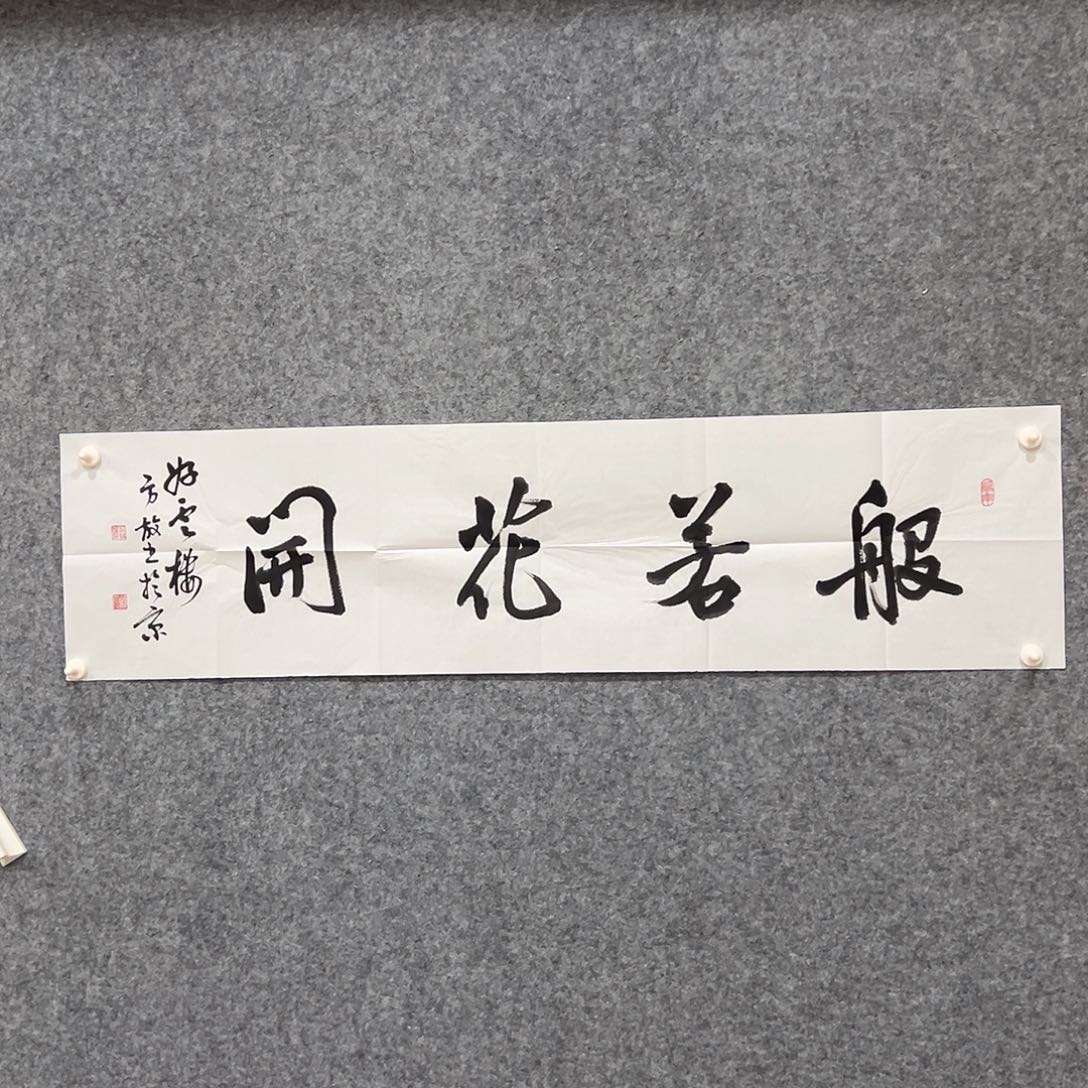 般若花開
好雲樓
方放书於京